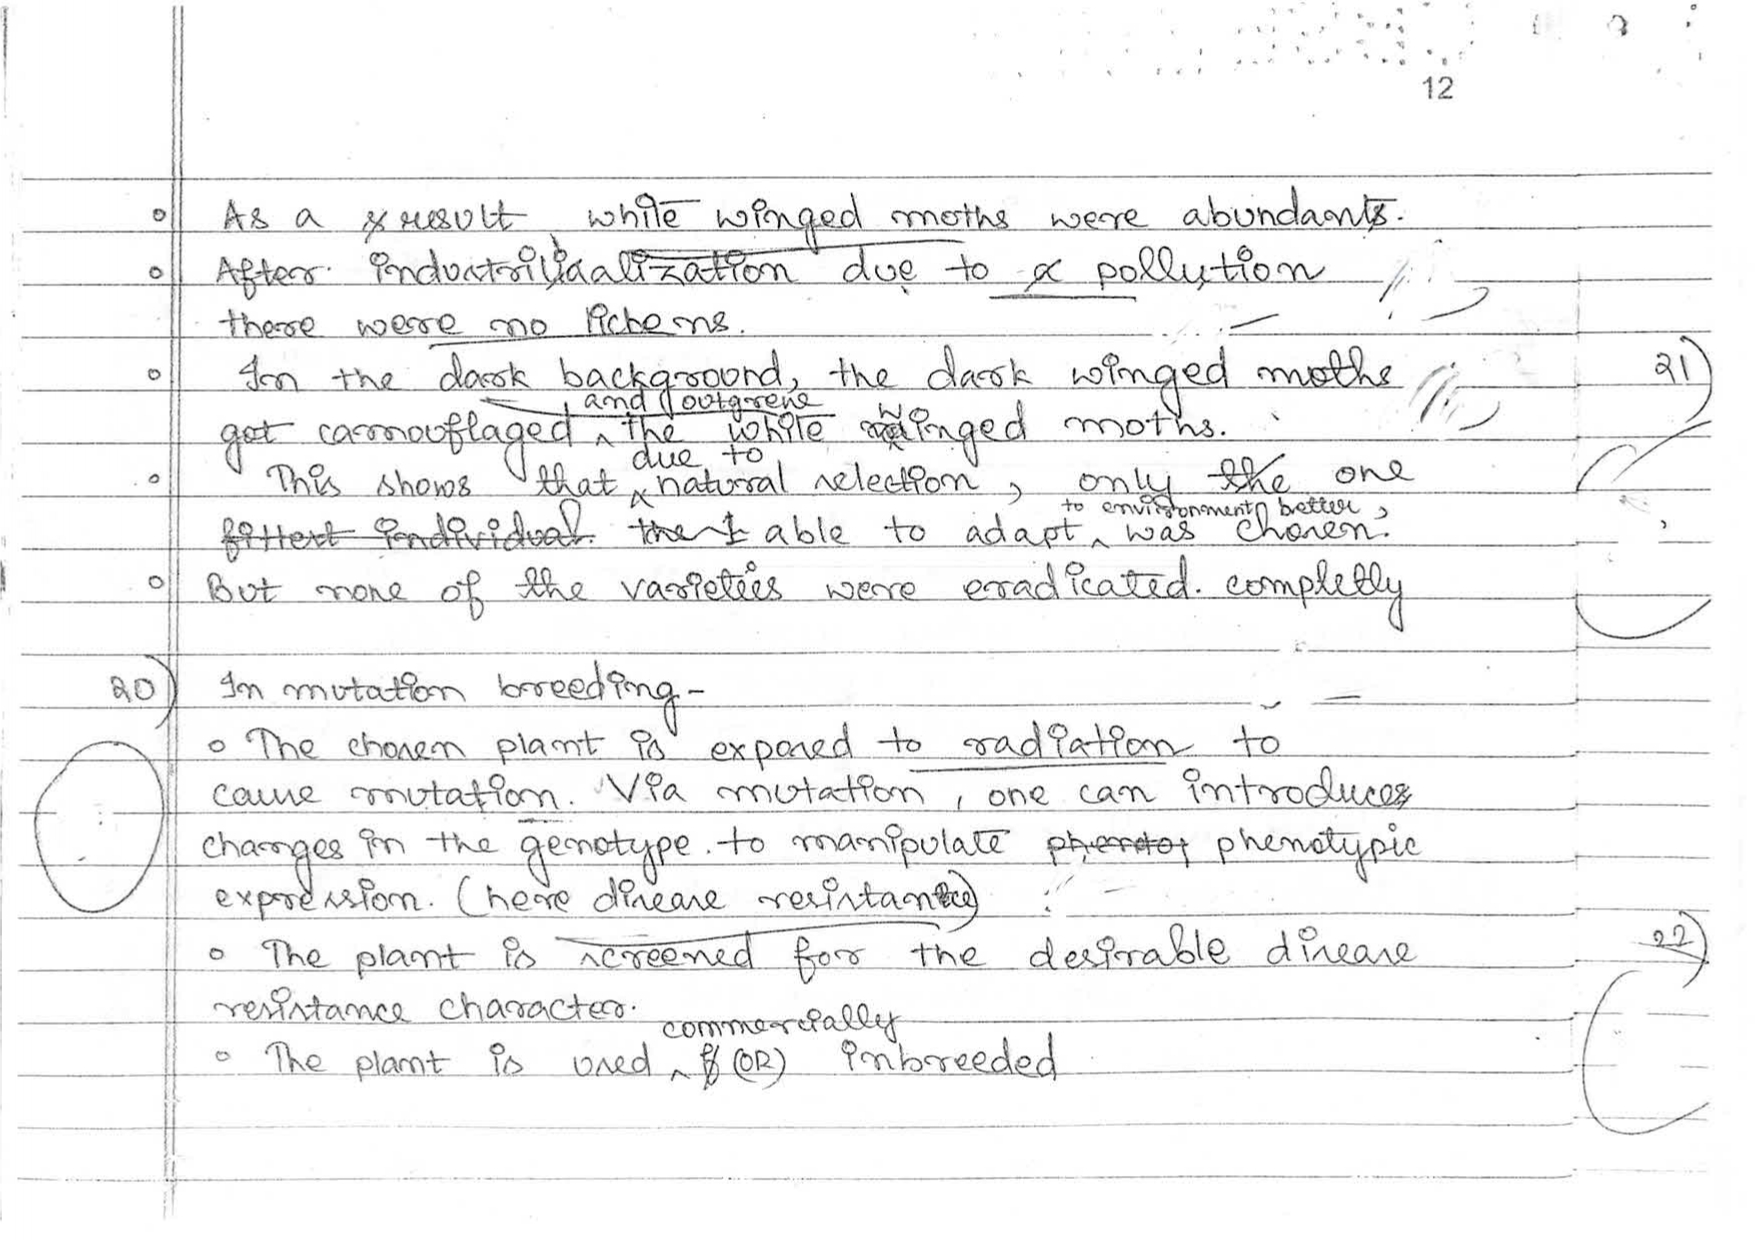 12
o As a result, while winged moths were abundant.
o After industrialization due to pollution
there were no lichens.
o In the dark background, the dark winged moths 21)
got camouflaged and outgrew the while winged moths.
o This shows that due to natural selection, only the one
fittest individual. able to adapt to environment better, was chosen.
o But none of the varieties were eradicated. completly
20) In mutation breeding -
o The chosen plant is exposed to radiation to
cause mutation. Via mutation, one can introduce
changes in the genotype. to manipulate phenotypic
expression. (here disease resistance)
o The plant is screened for the desirable disease 22)
resistance character.
o The plant is used commercially (OR) inbreeded